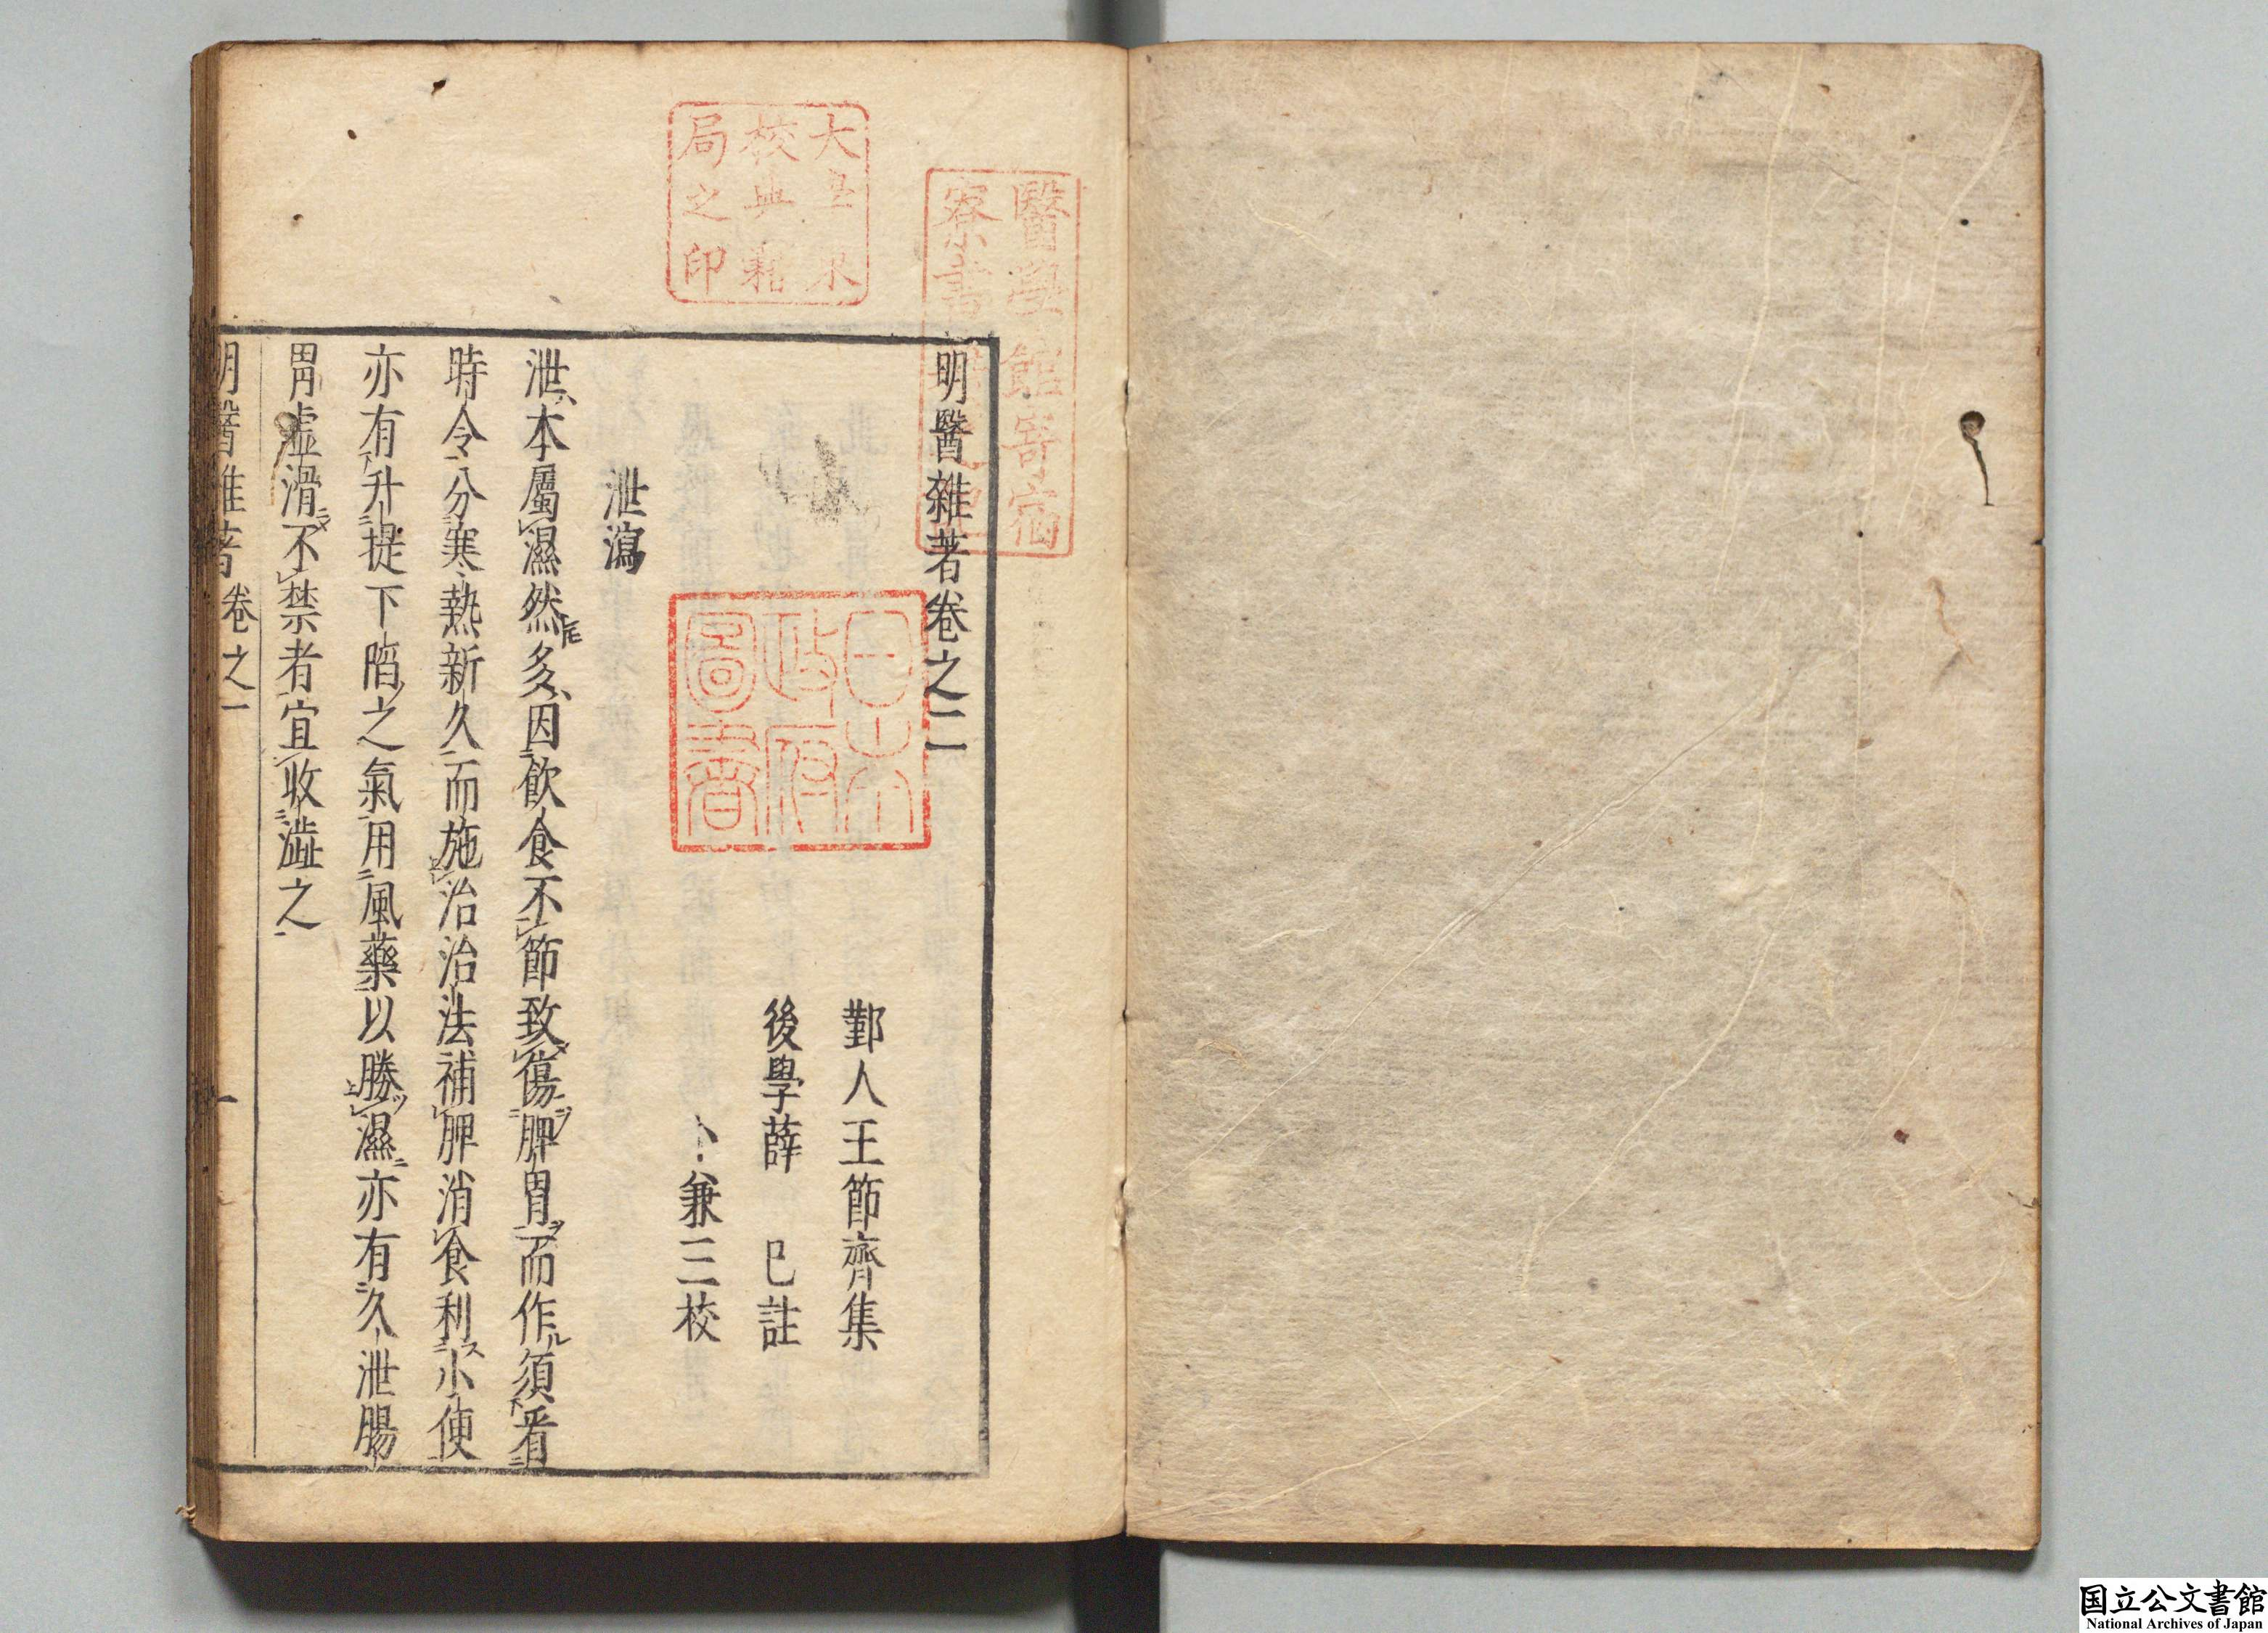 明醫雜著卷之二
鄞人王節齊集
後學薛　已註
兼三校
泄瀉
泄本屬濕然多因飲食不節致傷脾胃而作須看
時令分寒熱新久而施治治法補脾消食利小便
亦有升提下陷之氣用風藥以勝濕亦有久泄腸
胃虛滑不禁者宜收澁之
明醫雜著
卷之二
一
醫學館寄宿
寮書
大
校典
局之印
日本
政府
圖書
国立公文書館
National Archives of Japan